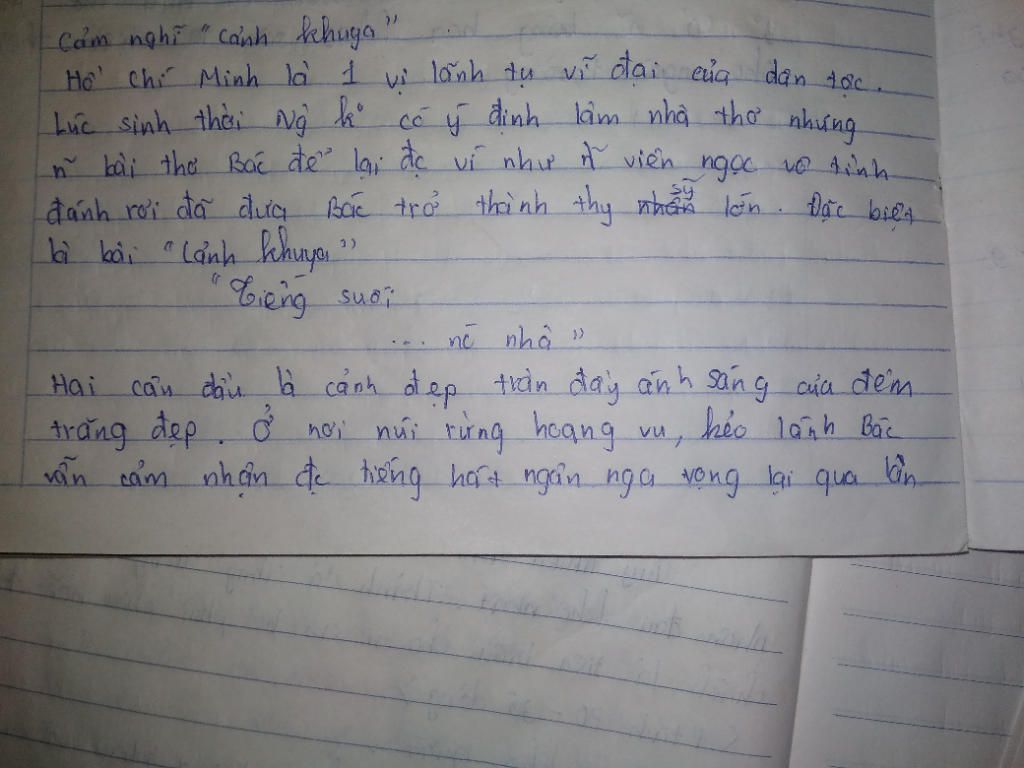 Cảm nghĩ "Cảnh khuya"
Hồ Chí Minh là 1 vị lãnh tụ vĩ đại của dân tộc.
Lúc sinh thời Ng k° có ý định làm nhà thơ nhưng
n~ bài thơ Bác để lại đc ví như n~ viên ngọc vô tình
đánh rơi đã đưa Bác trở thành thy sỹ lớn. Đặc biệt
là bài "Cảnh khuya"
"Tiếng suối
... nc nhà"
Hai câu đầu là cảnh đẹp tràn đầy ánh sáng của đêm
trăng đẹp. Ở nơi núi rừng hoang vu, hẻo lánh Bác
vẫn cảm nhận đc tiếng hát ngân nga vọng lại qua làn